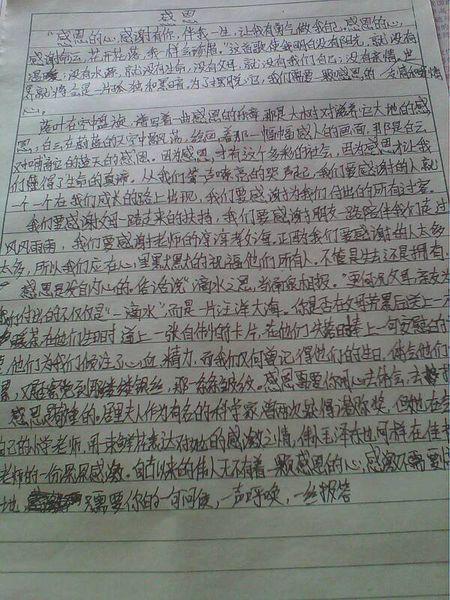 感恩
"感恩的心,感谢有你,伴我一生,让我有勇气做我自己,感恩的心
感谢命运,花开花落,我一样会珍惜。"这首歌使我明白没有阳光,就没有
温暖;没有水源,就没有生命,没有父母,就没有我们自己;没有亲情,世
界就将会是一片孤独和黑暗。为了摆脱它,我们需要一颗感恩的
心。
落叶在空中盘旋,谱写着一曲感恩的乐章,那是大树对滋养它大地的感
恩,白云在蔚蓝的天空中飘荡,绘画着那一幅幅感人的画面,那是白云
对哺育它的蓝天的感恩。因为感恩才有这个多彩的社会,因为感恩才让我
们懂得了生命的真谛。从我们第一声啼哭的哭声起,我们要感谢的人就
一个一个在我们成长的路上出现,我们要感谢为我们付出的所有过客。
我们要感谢父母一路过来的扶持,我们要感谢朋友一路陪伴我们走过
风风雨雨,我们要感谢老师的谆谆教诲,正因为我们要感谢的人太多
太多,所以我们应在心里默默的祝福他们所有人,不管是失去还是拥有。
感恩是发自内心的。俗话说"滴水之恩,当涌泉相报。"更何况父母,亲友为
我们付出的不仅仅是"一滴水",而是一片汪洋大海。你是否在父母劳累后送上一
在他们生日时递上一张自制的卡片,在他们失落时捧上一句安慰的
他们为我们倾注了心血、精力,而我们又何曾记得他们的生日,体会他们
累,又是否察觉到那缕缕银丝,那一条条皱纹。感恩需要你用心去体会,去
感恩是敬重的。居里夫人作为有名的科学家,曾两次获得诺贝尔奖,但她在会
自己的小学老师,用一束鲜花表达对她的感激之情,伟人毛泽东也同样在佳节
老师的一份深深感激。自古以来的伟人无不有着一颗感恩的心,感激不需要惊
地,只需要你的一句问候,一声呼唤,一丝报答